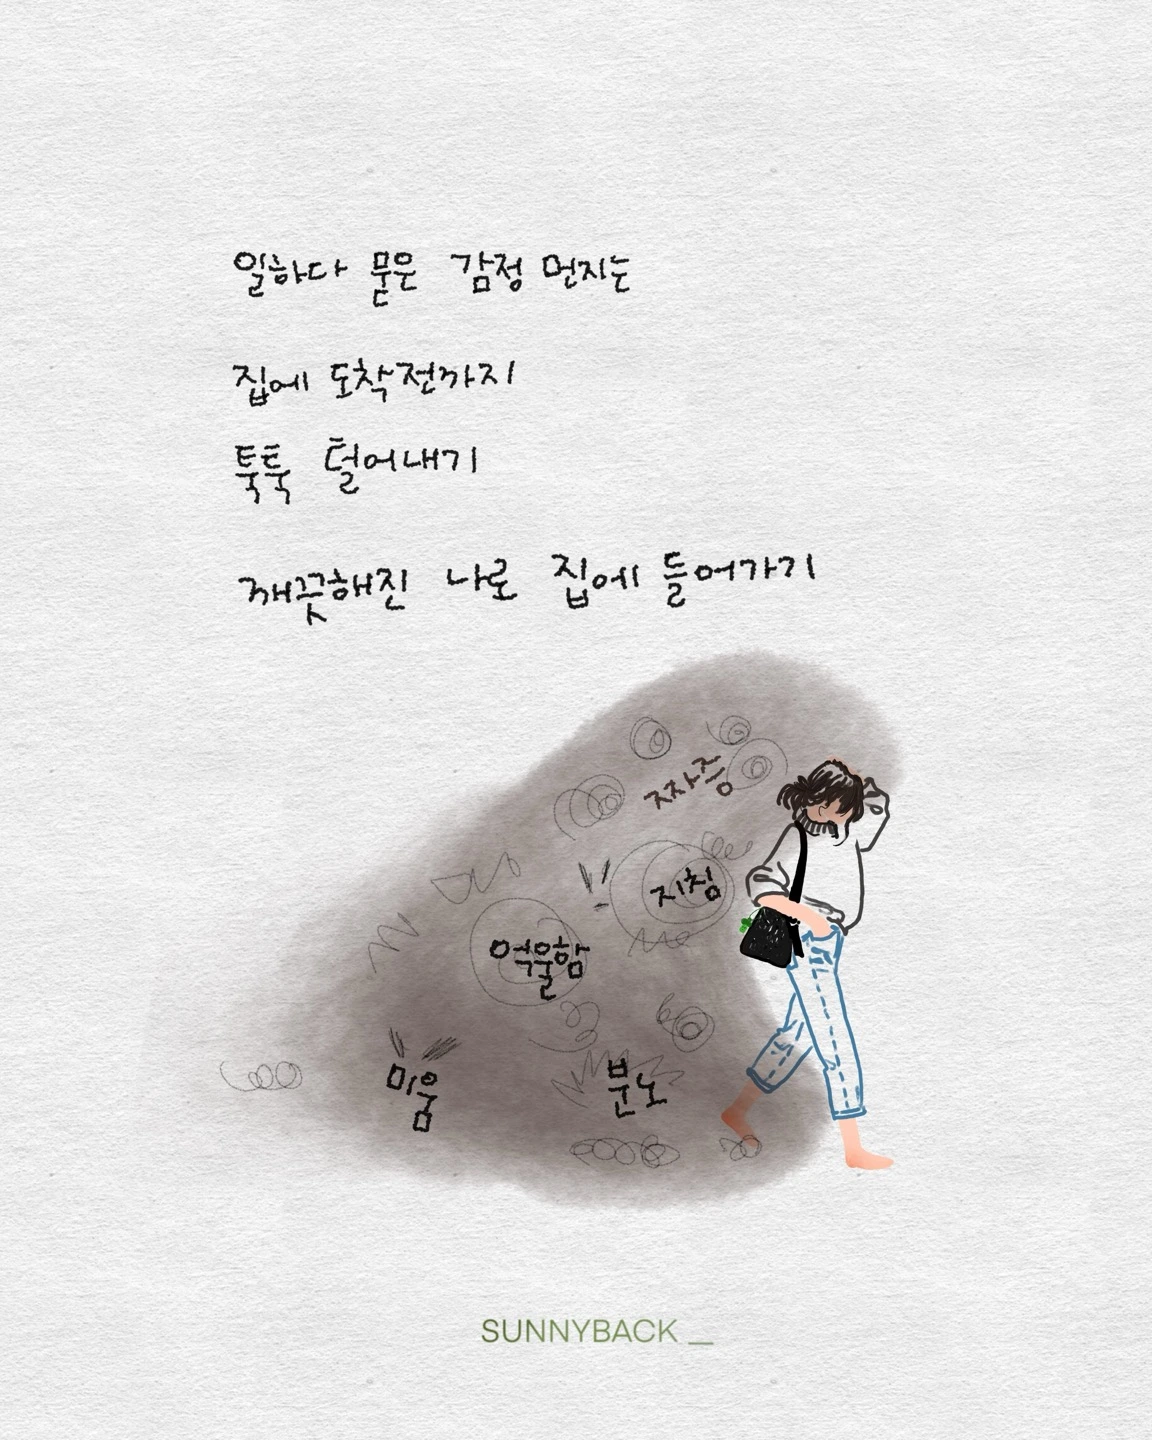 일하다 묻은 감정 먼지는
집에 도착전까지
툭툭 털어내기
깨끗해진 나로 집에 들어가기
짜증
지침
억울함
미움
분노
SUNNYBACK _